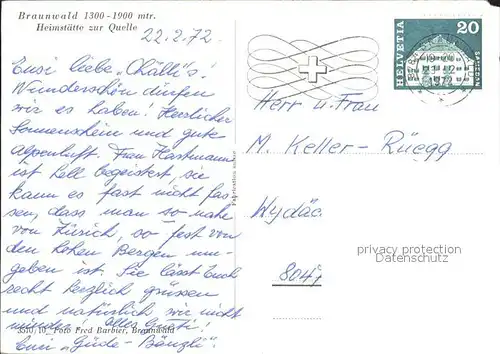 Braunwald 1300-1900 mtr.
Heimstätte zur Quelle
22.2.72
Eusi liebe "Chälli's"!
Wunderschön dürfen
wir es haben! Herrlicher
Sonnenschein und gute
Alpenluft. Frau Hartmann
ist hell begeistert, sie
kann es fast nicht fas-
sen, dass man so nahe
von Zürich, so fest von
den hohen Bergen um-
geben ist. Sie lässt Euch
recht herzlich grüssen
und natürlich wir nicht
minder! Alles Guets!
Eusi "Güde-Bänzli".
3510/10 Foto Fred Barbier, Braunwald
HELVETIA
20
SAMEDAN
1972
Herr u. Frau
M. Keller-Rüegg
Wydäc
privacy protection
Datenschutz